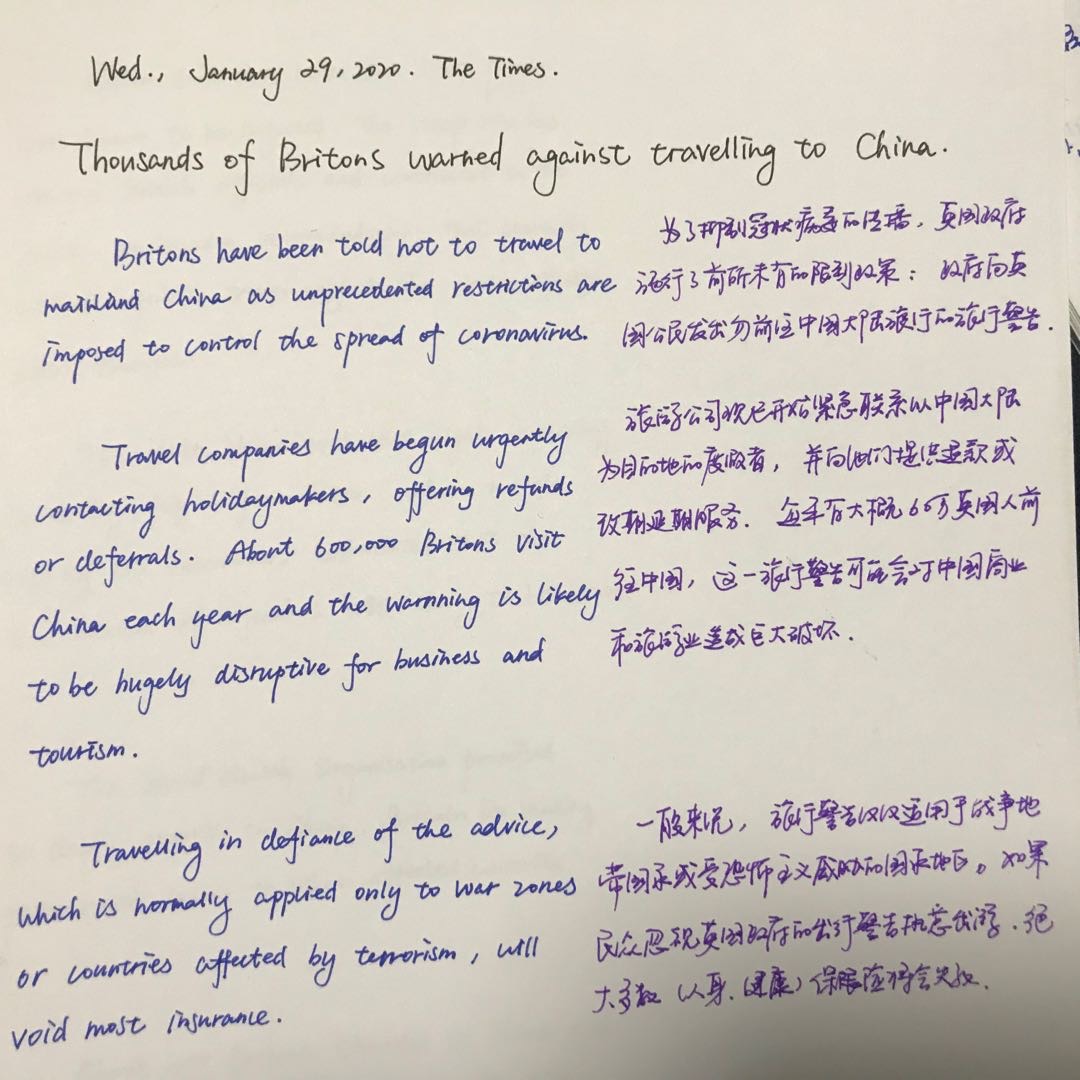 Wed., January 29, 2020. The Times.
Thousands of Britons warned against travelling to China.
Britons have been told not to travel to
mainland China as unprecedented restrictions are
imposed to control the spread of coronavirus.
为了抑制冠状病毒的传播，英国政府
施行了前所未有的限制政策：政府向英
国公民发出勿前往中国大陆旅行的旅行警告.
Travel companies have begun urgently
contacting holidaymakers, offering refunds
or deferrals. About 600,000 Britons visit
China each year and the warnning is likely
to be hugely disruptive for business and
tourism.
旅游公司现已开始紧急联系以中国大陆
为目的地的度假者，并向他们提供退款或
改期延期服务. 每年有大概60万英国人前
往中国，这一旅行警告可能会对中国商业
和旅游业造成巨大破坏.
Travelling in defiance of the advice,
which is normally applied only to war zones
or countries affected by terrorism, will
void most insurance.
一般来说，旅行警告仅仅适用于战事地
带国家或受恐怖主义威胁的国家地区。如果
民众忽视英国政府的出行警告执意出游.绝
大多数（人身.健康）保险应将会失效.